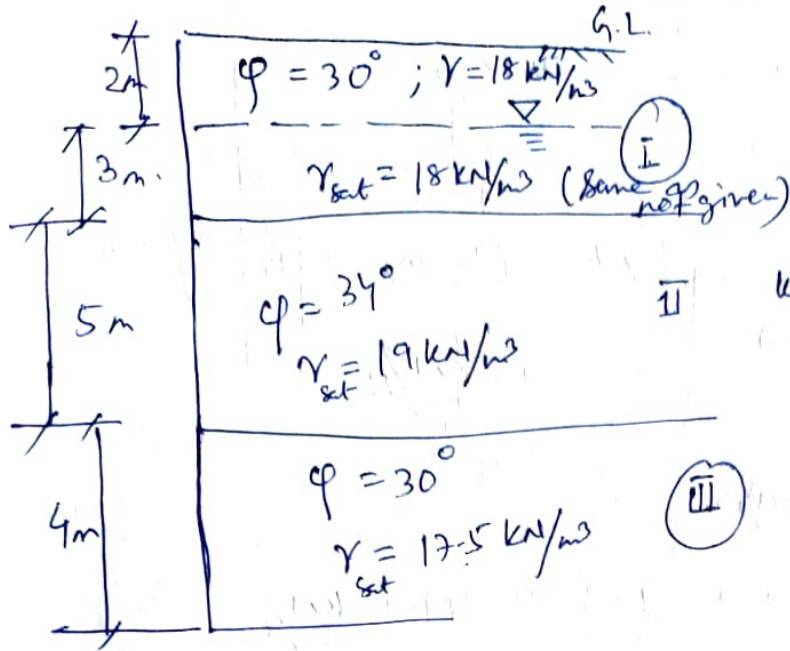 G.L.
2m
φ = 30° ; γ = 18 kN/m3
I
3m.
γsat = 18 kN/m3 (same not given)
5m
φ = 34°
γsat = 19 kN/m3
II
φ = 30°
III
4m
γsat = 17.5 kN/m3